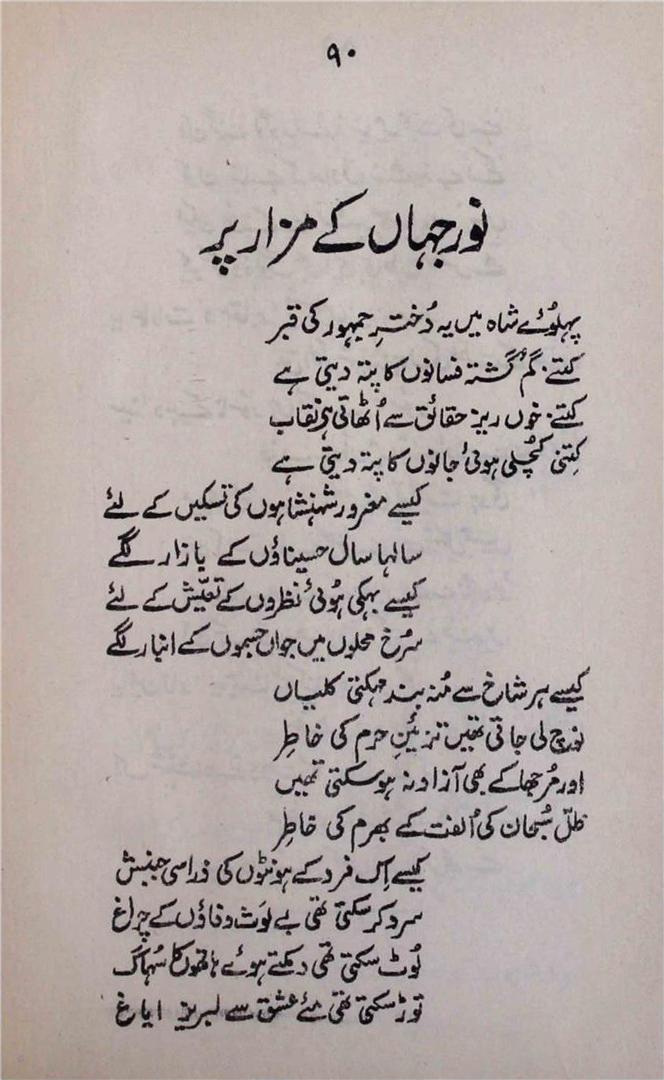 ۹۰
نور جہاں کے مزار پر
پہلوئے شاہ میں یہ دُخترِ جمہور کی قبر
کتنے گم گشتہ فسانوں کا پتہ دیتی ہے
کتنے خوں ریز حقائق سے اُٹھاتی ہے نقاب
کِتنی کُچلی ہوئی جانوں کا پتہ دیتی ہے
کیسے مغرور شہنشاہوں کی تسکیں کے لئے
سالہا سال حسیناؤں کے بازار لگے
کیسے بہکی ہُوئی نظروں کے تعیّش کے لئے
سُرخ محلوں میں جواں جسموں کے انبار لگے
کیسے ہر شاخ سے مُنہ بند مہکتی کلیاں
نوچ لی جاتی تھیں تزئینِ حرم کی خاطِر
اور مُرجھا کے بھی آزاد نہ ہو سکتی تھیں
ظلِّ سُبحان کی اُلفت کے بھرم کی خاطِر
کیسے اِک فرد کے ہونٹوں کی ذرا سی جنبش
سرد کر سکتی تھی بے لَوث وفاؤں کے چراغ
لُوٹ سکتی تھی دمکتے ہوئے ہاتھوں کا سُہاگ
توڑ سکتی تھی مئے عشق سے لبریز ایاغ